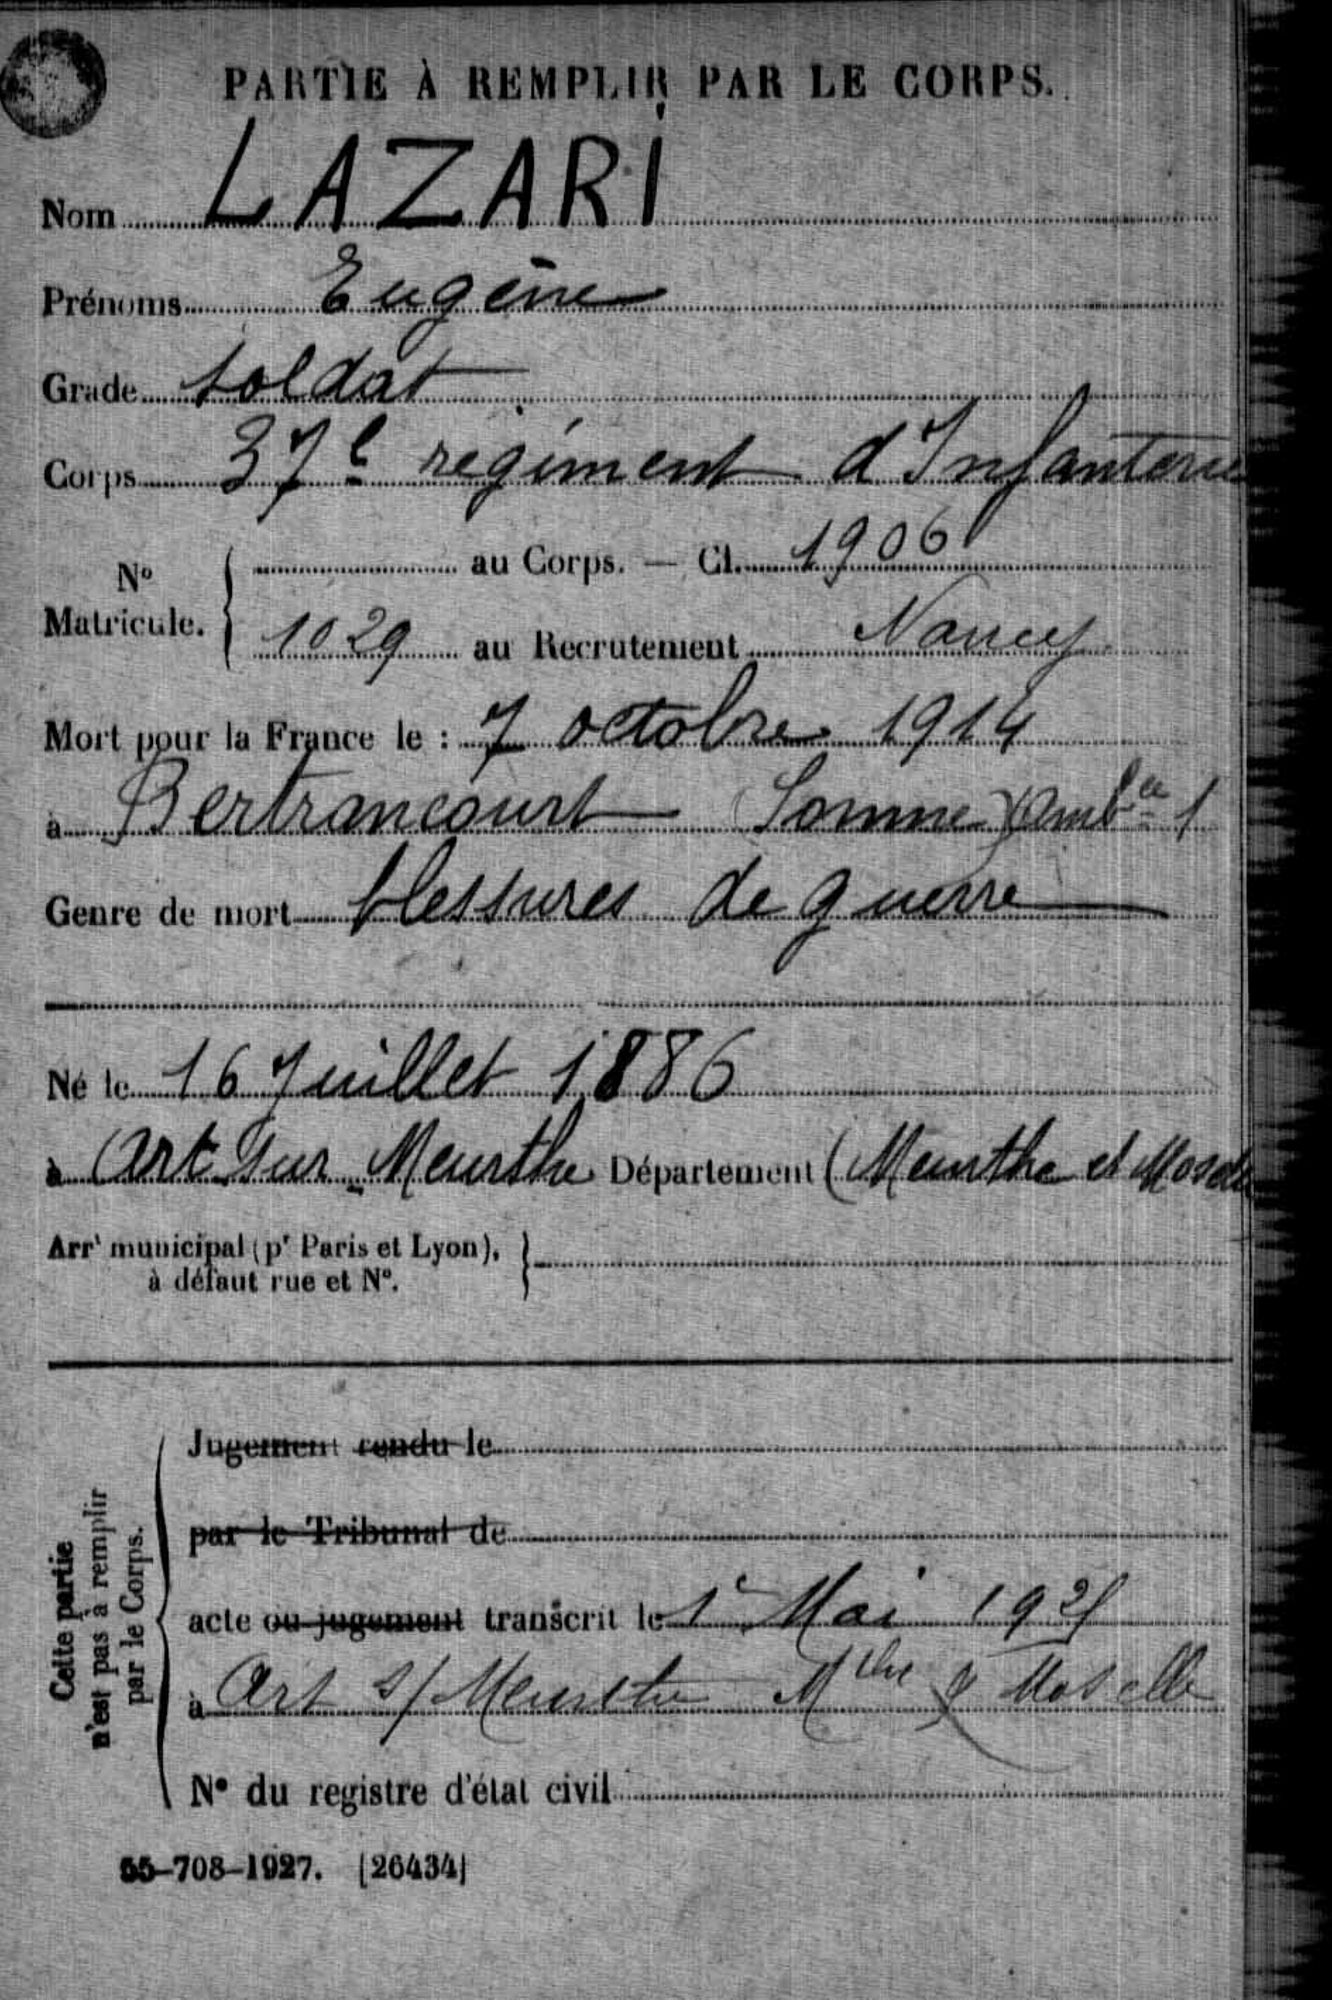 PARTIE À REMPLIR PAR LE CORPS.
Nom LAZARI
Prénoms Eugène
Grade soldat
Corps 37e régiment d'Infanterie
No Matricule. au Corps. — Cl. 1906
1029 au Recrutement Nancy
Mort pour la France le : 7 octobre 1914
à Bertrancourt (Somme) Ambce 1
Genre de mort blessures de guerre
Né le 16 Juillet 1886
à Art sur Meurthe Département (Meurthe et Moselle
Arrt municipal (pr Paris et Lyon),
à défaut rue et No.
Cette partie
n'est pas à remplir
par le Corps.
Jugement rendu le
par le Tribunal de
acte ou jugement transcrit le 1r Mai
à Art s/ Meurthe Mthe & Moselle
No du registre d'état civil
55-708-1927. [26434]